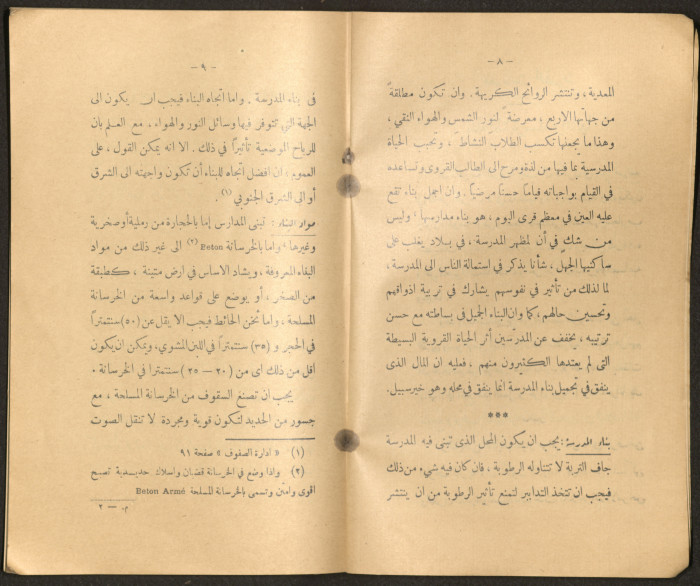 — ٨ —
المعدية، وتنتشر الروائح الكريهة. وان تكون مطلقةً
من جهاتها الاربع، معرضةً لنور الشمس والهواء النقي،
وهذا ما يجعلها تكسب الطلابَ النشاطَ، وتحبب الحياة
المدرسية بما فيها من لذة ومرح الى الطالب القروي وتساعده
في القيام بواجباته قياماً حسناً مرضياً. وان اجمل بناء تقع
عليه العين في معظم قرى اليوم، هو بناء مدارسها؛ وليس
من شك في أن لمظهر المدرسة، في بلاد يغلب على
ساكنيها الجهل، شأناً يذكر في استمالة الناس الى المدرسة،
لما لذلك من تأثير في نفوسهم يشارك في تربية اذواقهم
وتحسين حالهم، كما وان البناء الجميل في بساطته مع حسن
ترتيبه، يخفف عن المدرّسين أثر الحياة القروية البسيطة
التى لم يعتدها الكثيرون منهم، فعليه ان المال الذى
ينفق في تجميل بناء المدرسة انما ينفق في محله وهو خير سبيل.
***
بناء المدرسة: يجب ان يكون المحل الذى تبنى فيه المدرسة
جاف التربة لا تتناوله الرطوبة، فان كان فيه شيء من ذلك
فيجب ان تتخذ التدابير لتمنع تأثير الرطوبة من ان ينتشر
— ٩ —
في بناء المدرسة. واما اتجاه البناء فيجب ان يكون الى
الجهة التي تتوفر فيها وسائل النور والهواء. مع العلم بان
للرياح الموضعية تأثيراً في ذلك. لا انه يمكن القول، على
العموم؛ ان افضل اتجاه للبناء أن تكون واجهته الى الشرق
أو الى الشرق الجنوبي (١).
مواد البناء: تبنى المدارس إما بالحجارة من رملية أو صخرية
وغيرها، واما بالخرسانة Beton (٢) الى غير ذلك من مواد
البناء المعروفة، ويشاد الاساس في ارض متينة، كطبقة
من الصخر، أو يوضع على قواعد واسعة من الخرسانة
المسلحة، واما ثخن الحائط فيجب الا يقل عن (٥٠) سنتمتراً
في الحجر و (٣٥) سنتمتراً في اللبن المشوي، ويمكن ان يكون
اقل من ذلك اى من (٢٠ — ٢٥) سنتمترا في الخرسانة.
يجب ان تصنع السقوف من الخرسانة المسلحة، مع
جسور من الحديد لتكون قوية ومجردة لا تنقل الصوت
(١) « ادارة الصفوف » صفحة ٩١
(٢) واذا وضع في الخرسانة قضبان واسلاك حديدية تصبح
اقوى وامتن وتسمى بالخرسانة المسلحة Beton Armé
م. — ٢